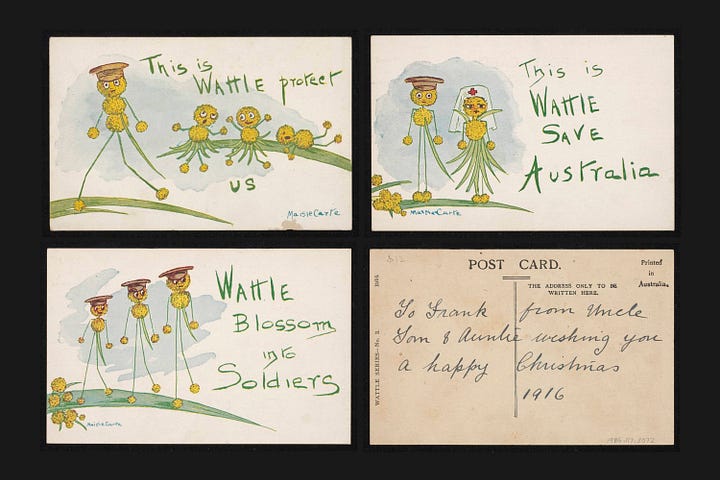 This is
WAttlE protect
us
Maisie Carte
This is
WAttlE
SAVE
Australia
Maisie Carte
WAttlE
Blossom
into
Soldiers
Maisie Carte
POST CARD.
THE ADDRESS ONLY TO BE
WRITTEN HERE.
Printed
in
Australia.
WATTLE SERIES—No. 3.
To Frank from Uncle
Tom & Auntie wishing you
a happy Christmas
1916